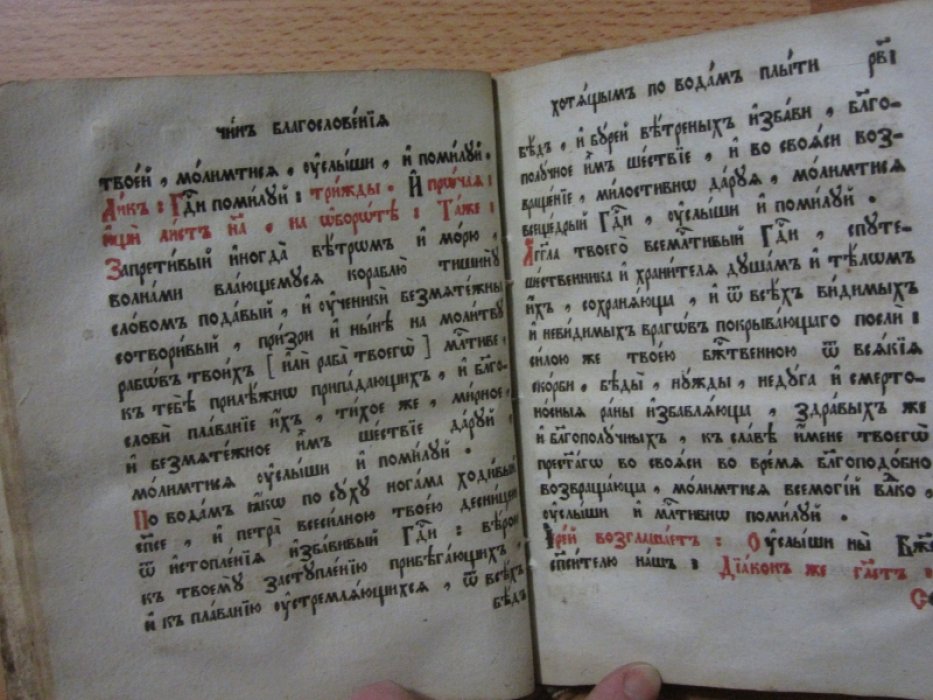 чи́нъ благослове́нїѧ
твое́й , мо́лимтисѧ , оу҆слы́ши , и҆ поми́лꙋй .
Ли́къ : Гдⷭ҇и поми́лꙋй : три́жды . И҆ про́чаѧ :
на ѡ҆боро́тѣ : Та́же :
Запрети́вый и҆ногда̀ вѣ́трѡмъ и҆ мо́рю ,
волна́ми влаю́щемꙋсѧ кораблю̀ тишинꙋ̀
сло́вомъ пода́вый , и҆ оу҆ченикѝ безмѧте́жны
сотвори́вый , при́зри и҆ ны́нѣ на моли́твꙋ
рабѡ́въ твои́хъ [ и҆лѝ раба̀ твоегѡ̀ ] млⷭ҇тиве ,
къ тебѣ̀ прилѣ́жнѡ припа́дающихъ , и҆ бл҃го-
словѝ пла́ванїе и҆́хъ , ти́хое же , ми́рное ,
и҆ безмѧте́жное и҆̀мъ ше́ствїе да́рꙋй ,
мо́лимтисѧ оу҆слы́ши и҆ поми́лꙋй .
По вода́мъ ꙗ҆́кѡ по сꙋ́хꙋ нога́ма ходи́вый
сп҃се , и҆ петра̀ всеси́лною твое́ю десни́цею
ѿ и҆стопле́нїѧ и҆зба́вивый Гдⷭ҇и : вѣ́рою
къ твоемꙋ̀ застꙋпле́нїю прибѣга́ющихъ ,
и҆ къ пла́ванїю оу҆стремлѧ́ющихсѧ , ѿ всѣ́хъ
бѣ́дъ
хотѧ́щымъ по вода́мъ плы́ти рв҃і
бѣ́дъ , и҆ бꙋ́рей вѣ́треныхъ и҆зба́ви , бл҃го-
полꙋ́чное и҆̀мъ ше́ствїе , и҆ во своѧ́си воз-
враще́нїе , ми́лостивнѡ да́рꙋѧ , мо́лимтисѧ
всеще́дрый Гдⷭ҇и , оу҆слы́ши и҆ поми́лꙋй .
А҆́гг҃ла твоего̀ всемлⷭ҇тивый Гдⷭ҇и , спꙋте-
ше́ственника и҆ храни́телѧ дꙋша́мъ и҆ тѣлѡ́мъ
и҆́хъ , сохранѧ́юща , и҆ ѿ всѣ́хъ ви́димыхъ
и҆ неви́димыхъ врагѡ́въ покрыва́ющаго послѝ :
си́лою же твое́ю бжⷭ҇твенною ѿ всѧ́кїѧ
ско́рби , бѣды̀ , нꙋ́жды , недꙋ́га и҆ смерто-
но́сныѧ ра́ны и҆збавлѧ́юща , здра́выхъ же
и҆ бл҃гополꙋ́чныхъ , къ сла́вѣ и҆́мене твоегѡ̀
прест҃а́гѡ во своѧ́си во вре́мѧ бл҃гоподо́бно
возвраща́юща , мо́лимтисѧ всемогі́й влⷣко ,
оу҆слы́ши и҆ млⷭ҇тивнѡ поми́лꙋй .
І҆ере́й возглаша́етъ : Оу҆слы́ши ны̀ Бж҃е
спⷭ҇и́телю на́шъ : Дїа́конъ же гл҃етъ :